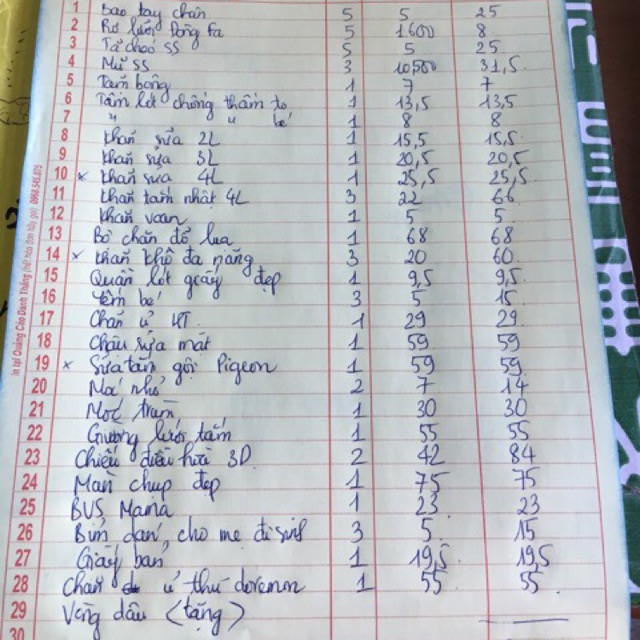 1 Bao tay chân 5 5 25
2 Rơ lưỡi Đông Fa 5 1600 8
3 Tã chéo SS 5 5 25
4 Mũ SS 3 10,500 31,5
5 Tăm bông 1 7 7
6 Tấm lót chống thấm to 1 13,5 13,5
7 " " bé 1 8 8
8 khăn sữa 2L 1 15,5 15,5
9 khăn sữa 3L 1 20,5 20,5
10 x khăn sữa 4L 1 25,5 25,5
11 khăn tắm nhật 4L 3 22 66
12 khăn voan 1 5 5
13 Bô chần đế lụa 1 68 68
14 x khăn khô đa năng 3 20 60
15 Quần lót giấy đẹp 1 9,5 9,5
16 yếm bé 3 5 15
17 Chăn ủ VT 1 29 29
18 Chậu rửa mặt 1 59 59
19 x Sữa tắm gội Pigeon 1 59 59
20 Mắc nhỏ 2 7 14
21 Móc tròn 1 30 30
22 Giường lưới tắm 1 55 55
23 Chiếu điều hoà 3D 2 42 84
24 Màn chụp đẹp 1 75 75
25 BVS Mama 1 23 23
26 Bỉm dán, cho mẹ đi sinh 3 5 15
27 Giấy bản 1 19,5 19,5
28 Chăn ủ thú doremon 1 55 55
29 Vòng dâu (tặng)
30
in tại Quảng Cáo Danh Thắng (hết hóa đơn hãy gọi) 0968.545.075